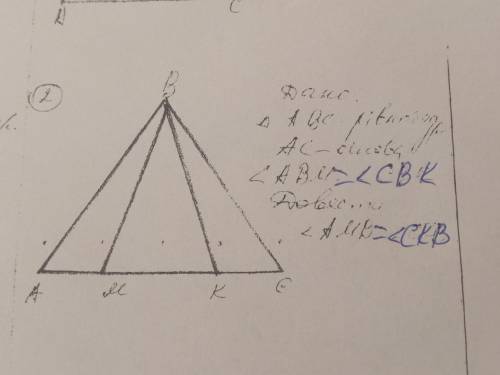 C
2
B
Дано.
△ ABC рівнобедр
AC – основа
<ABM=<CBK
Довести
<AMB=<CKB
A M K C